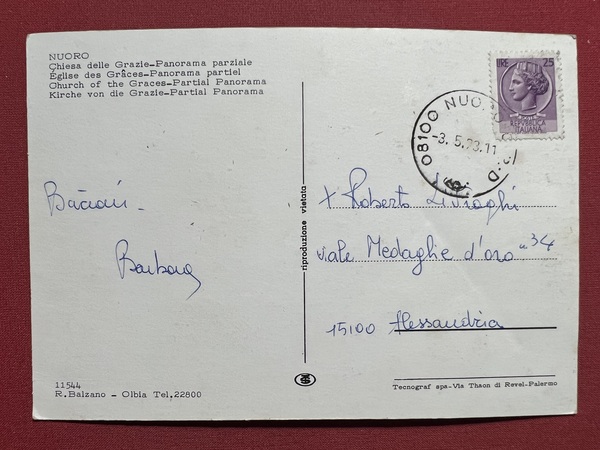 NUORO
Chiesa delle Grazie-Panorama parziale
Église des Grâces-Panorama partiel
Church of the Graces-Partial Panorama
Kirche von die Grazie-Partial Panorama
LIRE 25
REPUBBLICA
ITALIANA
08100 NUORO
-3.5.73.11
Bacioni-
Barbara
riproduzione vietata
Roberto
viale Medaglie d'oro n° 34
15100 Alessandria
11544
R.Balzano - Olbia Tel.22800
Tecnograf spa-Via Thaon di Revel-Palermo